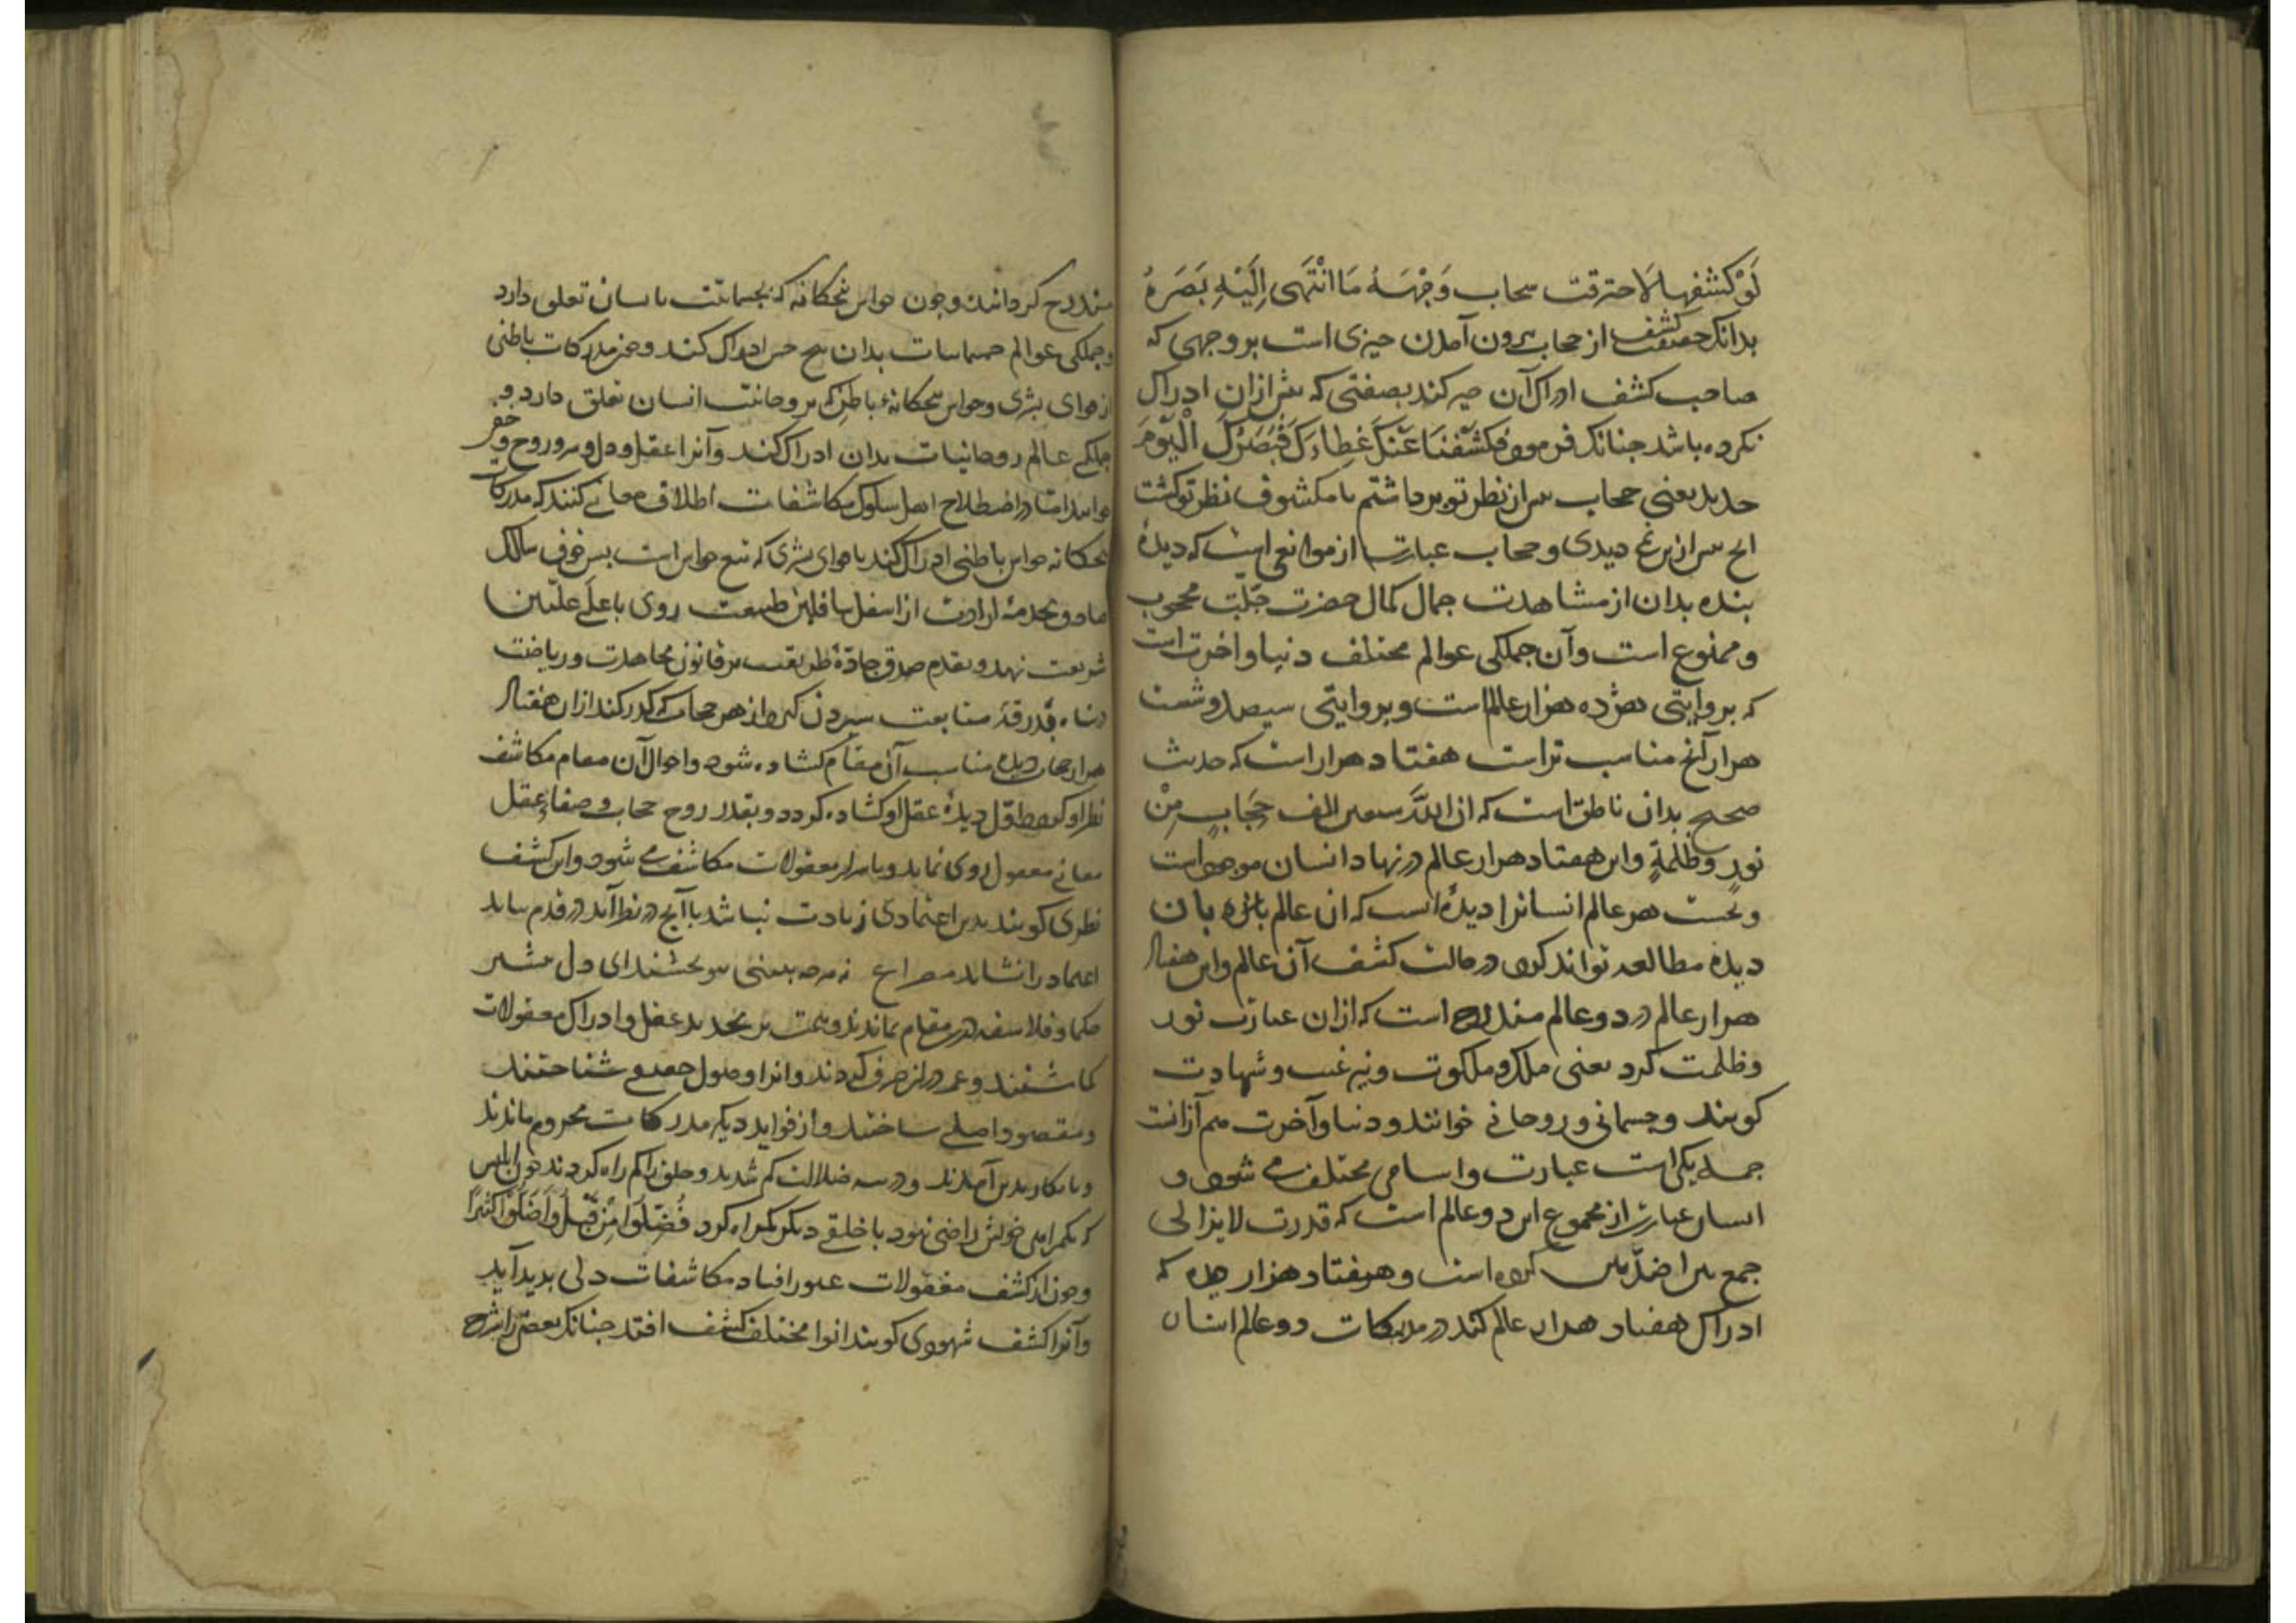 لَوْ کشفها لَاحترقت سحاب وَجْهَهُ مَا انْتَهَی اِلَیْهِ بَصَرهُ
بدانک حقیقت کشف از حجاب بیرون آمدن چیزی است بر وجهی که
صاحب کشف ادراک آن چیز کند بصفتی که پیش ازان ادراک
نکرده باشد چنانک فرمود فَکَشَفْنَا عَنْکَ غِطاءَکَ فَبَصَرُکَ الْیَوْمَ
حدید یعنی حجاب از نظر تو برداشتیم تا مکشوف نظر تو گشت
انچ پیش ازین نمی دیدی و حجاب عبارت از موانعی است که دیدهٔ
بنده بدان از مشاهدت جمال کمال حضرت جلّت محجوب
و ممنوع است و آن جملکی عوالم مختلف دنیا و اخرت است
که بروایتی هژده هزار عالم است و بروایتی سیصد و شصت
هزار آنچ مناسب تر است هفتاد هزار است که حدیث
صحیح بدان ناطق است که ان الله سبعین الف حِجَابٍ مِنْ
نورٍ وظلمةٍ و این هفتاد هزار عالم در نهاد انسان موجود است
و بحسب هر عالم انسانرا دیدهٔ است که ان عالم بان
دیده مطالعه تواند کرد در حالت کشف آن عالم و این هفتاد
هزار عالم در دو عالم مندرج است که ازان عبارت نور
و ظلمت کرد یعنی ملک و ملکوت و نیز غیب و شهادت
کویند و جسمانی و روحانی خوانند و دنیا و آخرت هم
جمله یکی است عبارت و اسامی مختلف می شود و
انسان عبارت از مجموع این دو عالم است که قدرت لایزالی
جمع بین الضدّین کرده است و هفتاد هزار دیده که
ادراک هفتاد هزار عالم کند در مدرکات دو عالم انسان
مندرج کردانیده و چون حواس پنجکانه که بجسمانیت انسان تعلق دارد
و جملکی عوالم جسمانیات بدان پنج حس ادراک کند و مدرکات باطنی
از قوای بشری و حواس پنجکانهٔ باطن که بروحانیت انسان تعلق دارد و
جملکی عالم روحانیات بدان ادراک کند و آنرا عقل و دل و سر و روح و خفی
خوانند اما در اصطلاح اهل سلوک مکاشفات اطلاق معانی کنند که مدرکات
پنجکانه حواس باطنی ادراک کند یا قوای بشری که تبع حواس است پس چون سالک
صادق بجذبهٔ ارادت از اسفل سافلین طبیعت روی باعلَی علیین
شریعت نهد و بقدم صدق جادّهٔ طریقت بر قانون مجاهدت و ریاضت
در پناه بدرقهٔ متابعت سپردن کیرد از هر حجاب که کذر کند ازان هفتاد
هزار حجاب دیدهٔ مناسب آن مقام کشاده شود و احوال آن مقام مکاشف
نظر او کردد اوّل دیدهٔ عقل او کشاده کردد و بقدر حجاب و صفای عقل
معانی معقول روی نماید و باسرار معقولات مکاشف می شود و این کشف
نظری کویند بدین اعتمادی زیادت نباشد تا آنچ در نظر آید در قدم نیاید
اعتماد را نشاید مصراع نه هرچه ببینی بخشند ای دل
حکما و فلاسفه درین مقام بماندند و همت بر تجرید عقل و ادراک معقولات
کماشتند و عمر در این صرف کردند و آنرا وصول حقیقی شناختند
و مقصود اصلی ساختند و از فواید دیکر مدرکات محروم ماندند
و بانکار پدید آمدند و در تیه ضلالت کم شدند و خلق را کم راه کردند چون ابلیس
که بکمراهی خویش راضی نبود تا خلقی دیکر کمراه کرد فَضَلّوا مِنْ قَبْلُ وَاَضَلّوا کَثیرًا
و چون از کشف معقولات عبور افتاد مکاشفات دلی پدید آید
و آنرا کشف شهودی کویند انوار مختلف کشف افتد چنانک بعضی را شرح